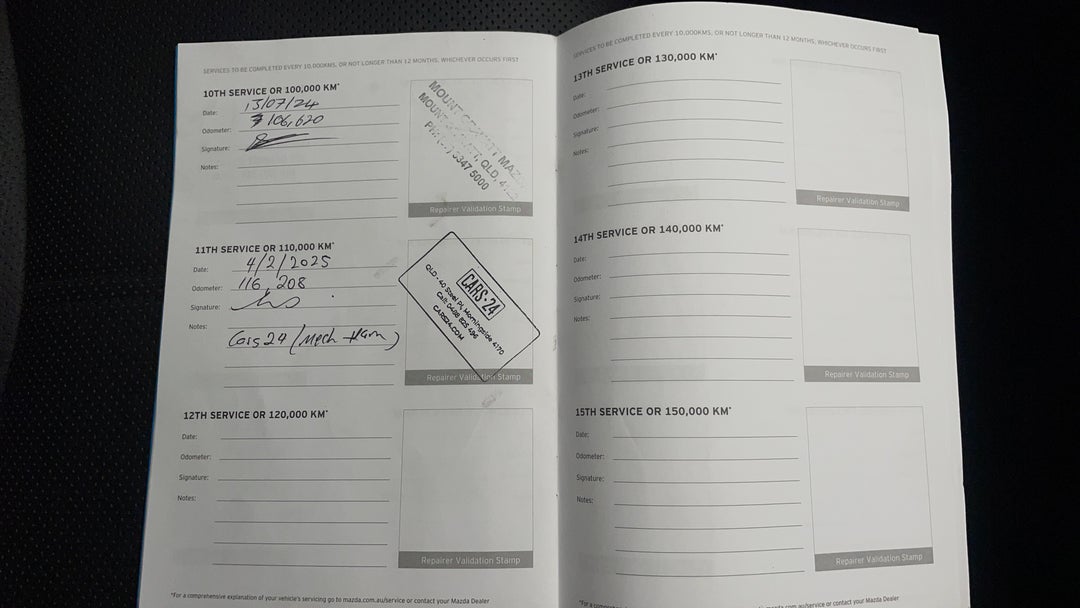 SERVICES TO BE COMPLETED EVERY 10,000KMS, OR NOT LONGER THAN 12 MONTHS, WHICHEVER OCCURS FIRST
10TH SERVICE OR 100,000 KM*
Date: 13/07/24
Odometer: 106,620
Signature:
Notes:
MOUNT MAZDA
MOUNT QLD,
PH: 3347 5000
Repairer Validation Stamp
11TH SERVICE OR 110,000 KM*
Date: 4/2/2025
Odometer: 116,208
Signature:
Notes:
Cars24 (Mech Ham)
CARS·24
QLD - 40 Steel Pl, Morningside 4170
Call: 0488 825 496
CARS24.COM
Repairer Validation Stamp
12TH SERVICE OR 120,000 KM*
Date:
Odometer:
Signature:
Notes:
Repairer Validation Stamp
*For a comprehensive explanation of your vehicle's servicing go to mazda.com.au/service or contact your Mazda Dealer
SERVICES TO BE COMPLETED EVERY 10,000KMS, OR NOT LONGER THAN 12 MONTHS, WHICHEVER OCCURS FIRST
13TH SERVICE OR 130,000 KM*
Date:
Odometer:
Signature:
Notes:
Repairer Validation Stamp
14TH SERVICE OR 140,000 KM*
Date:
Odometer:
Signature:
Notes:
Repairer Validation Stamp
15TH SERVICE OR 150,000 KM*
Date:
Odometer:
Signature:
Notes:
Repairer Validation Stamp
*For a mazda.com.au/service or contact your Mazda Dealer